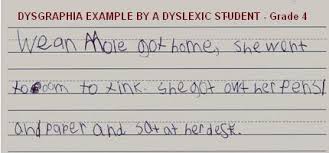 DYSGRAPHIA EXAMPLE BY A DYSLEXIC STUDENT - Grade 4
Wean Mole got home, she went
to room to tink. she got out her pensl
and paper and sat at her desk.